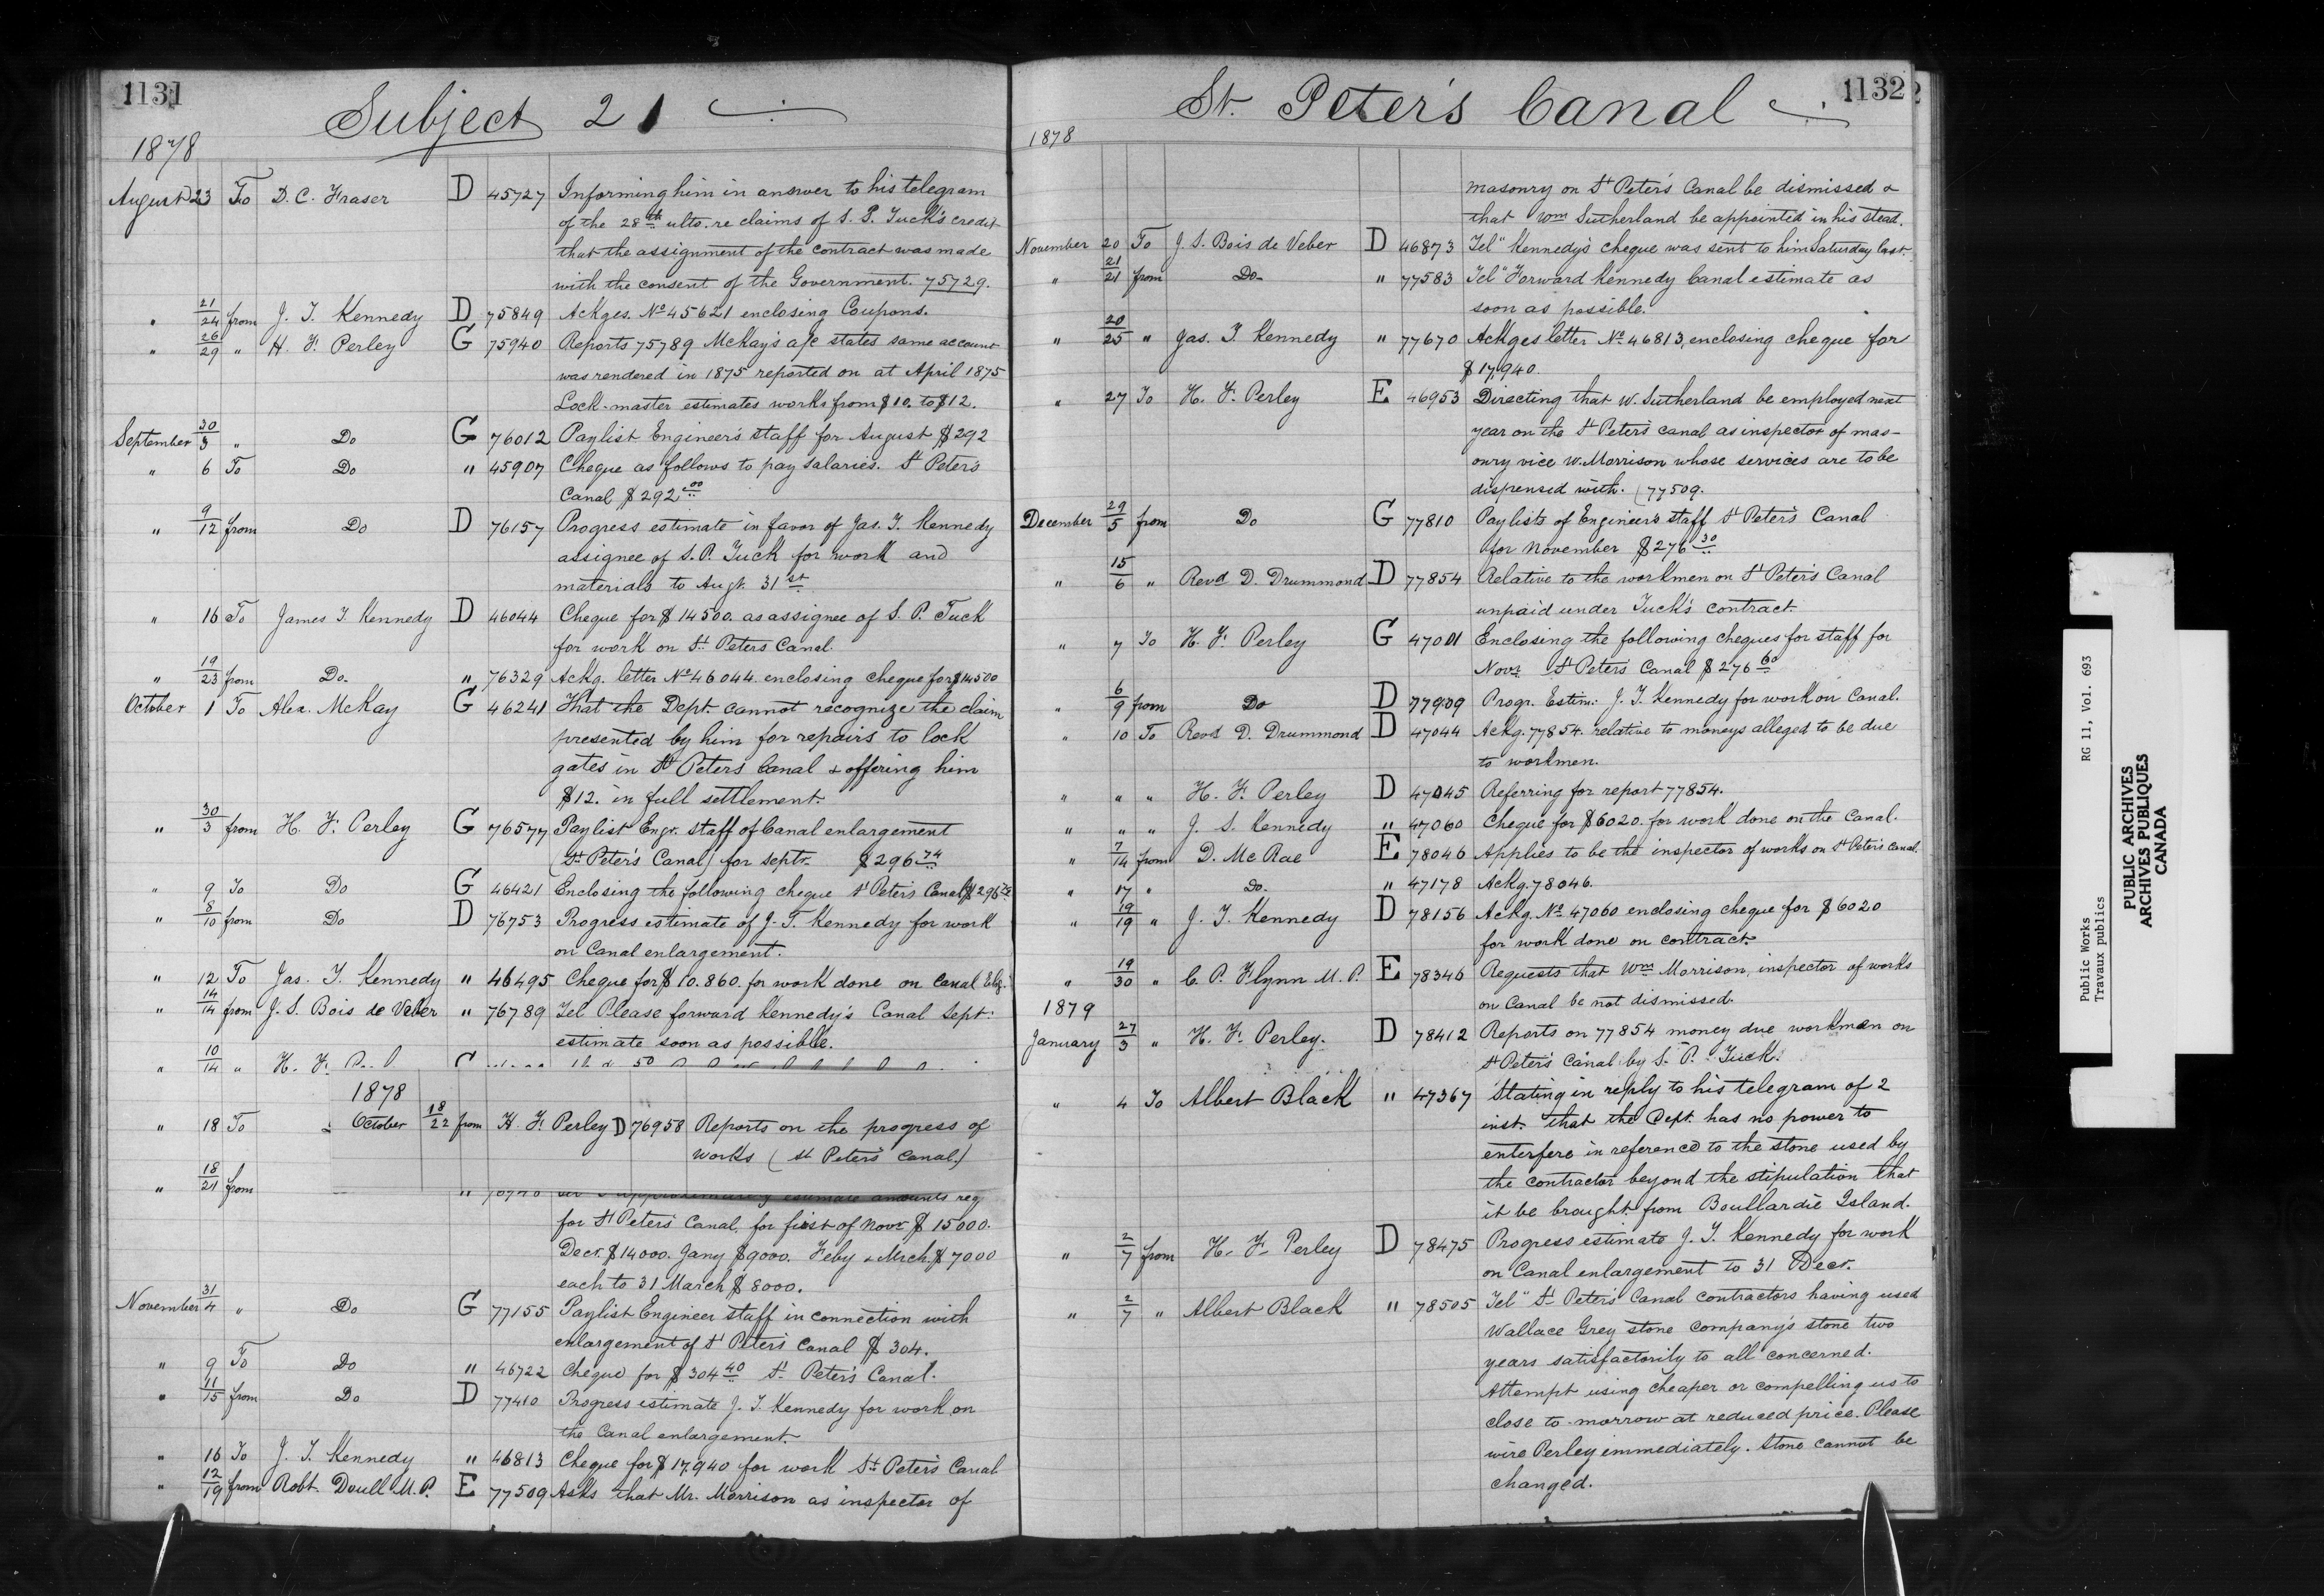 1131
Subject 21
1878
August 23 To D. C. Fraser D 45727 Informing him in answer to his telegram
of the 28th ulto. re claims of S. P. Tuck's credit
that the assignment of the contract was made
with the consent of the Government. 75729.
" 21/24 from J. T. Kennedy D 75849 Ackges. No 45621 enclosing Coupons.
" 26/29 " H. F. Perley G 75940 Reports 75789 McKay's a/c states same account
was rendered in 1875 reported on at April 1875
Lock-master estimates works from $10. to $12.
September 30/3 " Do G 76012 Paylist Engineer's staff for August $292
" 6 To Do " 45907 Cheque as follows to pay salaries. St Peter's
Canal $292.00
" 9/12 from Do D 76157 Progress estimate in favor of Jas. T. Kennedy
assignee of S. P. Tuck for work and
materials to Augt. 31st
" 16 To James T. Kennedy D 46044 Cheque for $14500. as assignee of S. P. Tuck
for work on St. Peters Canal.
" 19/23 from Do. " 76329 Ackg. letter No 46044 enclosing cheque for $14500
October 1 To Alex. McKay G 46241 That the Dept. cannot recognize the claim
presented by him for repairs to lock
gates in St Peters Canal & offering him
$12. in full settlement.
" 30/3 from H. F. Perley G 76577 Paylist Engr. staff of Canal enlargement
(St. Peter's Canal) for septr. $296.74
" 9 To Do G 46421 Enclosing the following cheque St Peter's Canal $296.74
" 8/10 from Do D 76753 Progress estimate of J. T. Kennedy for work
on Canal enlargement.
" 12 To Jas. T. Kennedy " 46495 Cheque for $10.860. for work done on Canal Elg.
" 14/14 from J. S. Bois de Veber " 76789 Tel Please forward Kennedy's Canal Sept:
estimate soon as possible.
" 10/14 " H. F.
1878
" 18 To October 18/22 from H. F. Perley D 76958 Reports on the progress of
works (St Peter's Canal.)
" 18/21 from
estimate amounts req
for St Peter's Canal, for first of Novr $15000.
Decr. $14000. Jany $9000. Feby & Mrch. $7000
each to 31 March $8000.
November 31/4 " Do G 77155 Paylist Engineer staff in connection with
enlargement of St Peter's Canal $304.
" 9 To Do " 46722 Cheque for $304.40 St Peter's Canal.
" 11/15 from Do D 77410 Progress estimate J. T. Kennedy for work on
the Canal enlargement.
" 16 To J. T. Kennedy " 46813 Cheque for $17.940 for work St. Peter's Canal
" 12/19 from Robt. Doull M.P. E 77509 Asks that Mr. Morrison as inspector of
1132
St. Peter's Canal
1878
masonry on St Peter's Canal be dismissed &
that Wm Sutherland be appointed in his stead.
November 20 To J. S. Bois de Veber D 46873 Tel" Kennedy's cheque was sent to him Saturday last.
" 21/21 from Do " 77583 Tel" Forward Kennedy Canal estimate as
soon as possible.
" 20/25 " Jas. T. Kennedy " 77670 Ackges letter No 46813, enclosing cheque for
$17,940.
" 27 To H. F. Perley E 46953 Directing that W. Sutherland be employed next
year on the St Peter's canal as inspector of mas-
onry vice W. Morrison whose services are to be
dispensed with. (77509.
December 29/5 from Do G 77810 Paylists of Engineer's staff St Peter's Canal
for November $276.30
" 15/6 " Revd D. Drummond D 77854 Relative to the workmen on St Peter's Canal
unpaid under Tuck's contract.
" 7 To H. F. Perley G 47001 Enclosing the following cheques for staff for
Novr. St Peter's Canal $276.60
" 6/9 from Do D 77909 Progr. Estim: J. T. Kennedy for work on Canal.
" 10 To Revd D. Drummond D 47044 Ackg. 77854. relative to moneys alleged to be due
to workmen.
" " " H. F. Perley D 47045 Referring for report 77854.
" " " J. S. Kennedy " 47060 Cheque for $6020. for work done on the Canal.
" 7/14 from D. McRae E 78046 Applies to be the inspector of works on St Peter's Canal.
" 17 " Do. " 47178 Ackg. 78046.
" 19/19 " J. T. Kennedy D 78156 Ackg. No 47060 enclosing cheque for $6020
for work done on contract.
" 19/30 " C. P. Flynn M.P. E 78346 Requests that Wm Morrison, inspector of works
on Canal be not dismissed.
1879
January 27/3 " H. F. Perley. D 78412 Reports on 77854 money due workmen on
St Peter's Canal by S. P. Tuck.
" 4 To Albert Black " 47367 Stating in reply to his telegram of 2
inst. that the Dept. has no power to
enterfere in reference to the stone used by
the contractor beyond the stipulation that
it be brought from Boullardie Island.
" 2/7 from H. F. Perley D 78475 Progress estimate J. T. Kennedy for work
on Canal enlargement to 31 Decr.
" 2/7 " Albert Black " 78505 Tel" St Peter's Canal contractors having used
Wallace Grey stone company's stone two
years satisfactorily to all concerned.
Attempt using cheaper or compelling us to
close to-morrow at reduced price. Please
wire Perley immediately. Stone cannot be
changed.
Public Works RG 11, Vol. 693
Travaux publics
PUBLIC ARCHIVES
ARCHIVES PUBLIQUES
CANADA